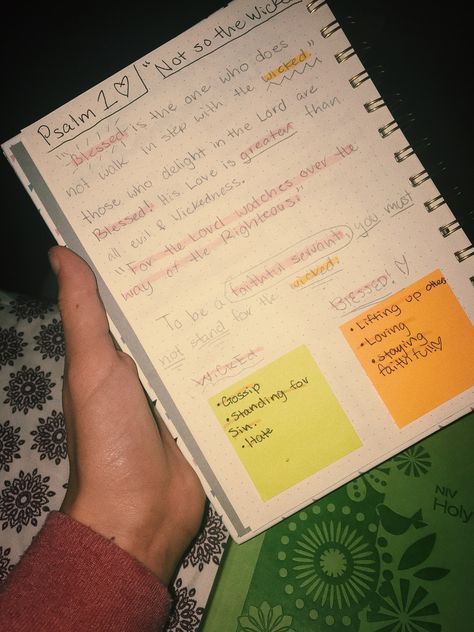 Psalm 1♡ "Not so the Wicked"
"Blessed is the one who does
not walk in step with the wicked"
those who delight in the Lord are
Blessed! His Love is greater than
all evil & Wickedness.
"For the Lord watches over the
way of the Righteous"
To be a faithful servant, you must
not stand for the wicked.
WICKED
• Gossip
• Standing for
Sin.
• Hate
BLESSED! ♡
• Lifting up others
• Loving
• Staying
faithful!♡
NIV
Holy